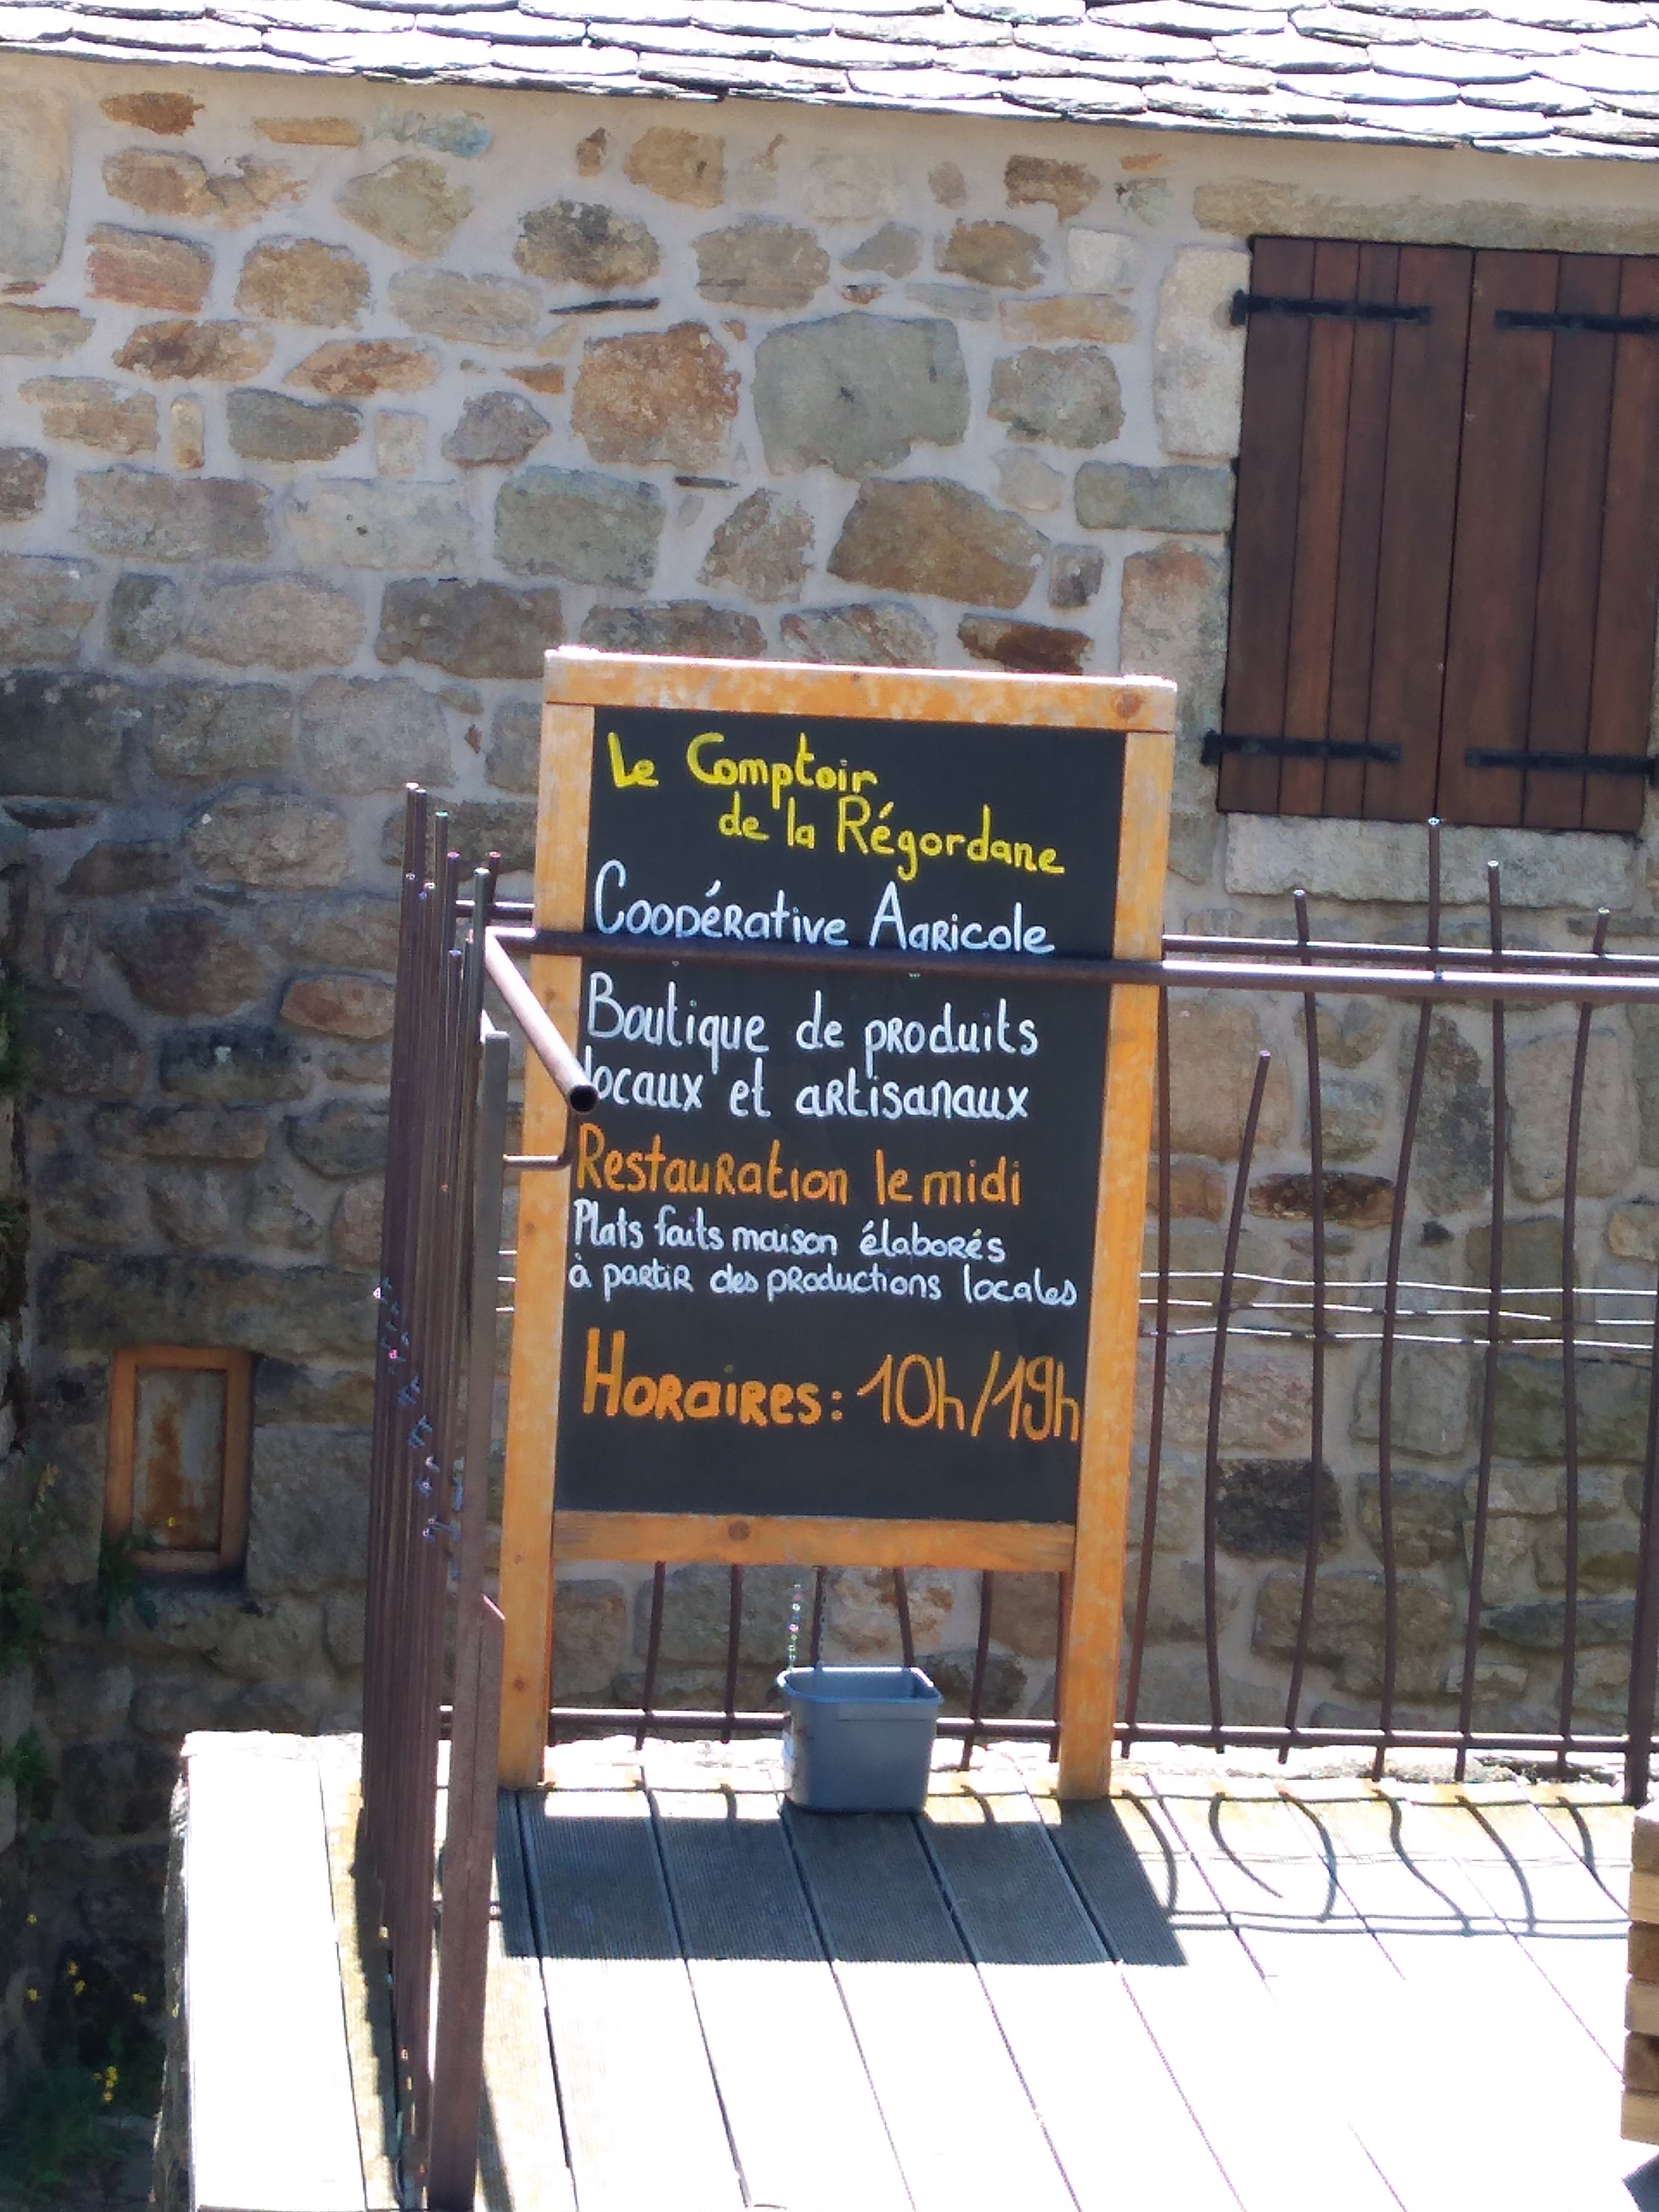 Le Comptoir
de la Régordane
Coopérative Agricole
Boutique de produits
locaux et artisanaux
Restauration le midi
Plats faits maison élaborés
à partir des productions locales
Horaires: 10h/19h